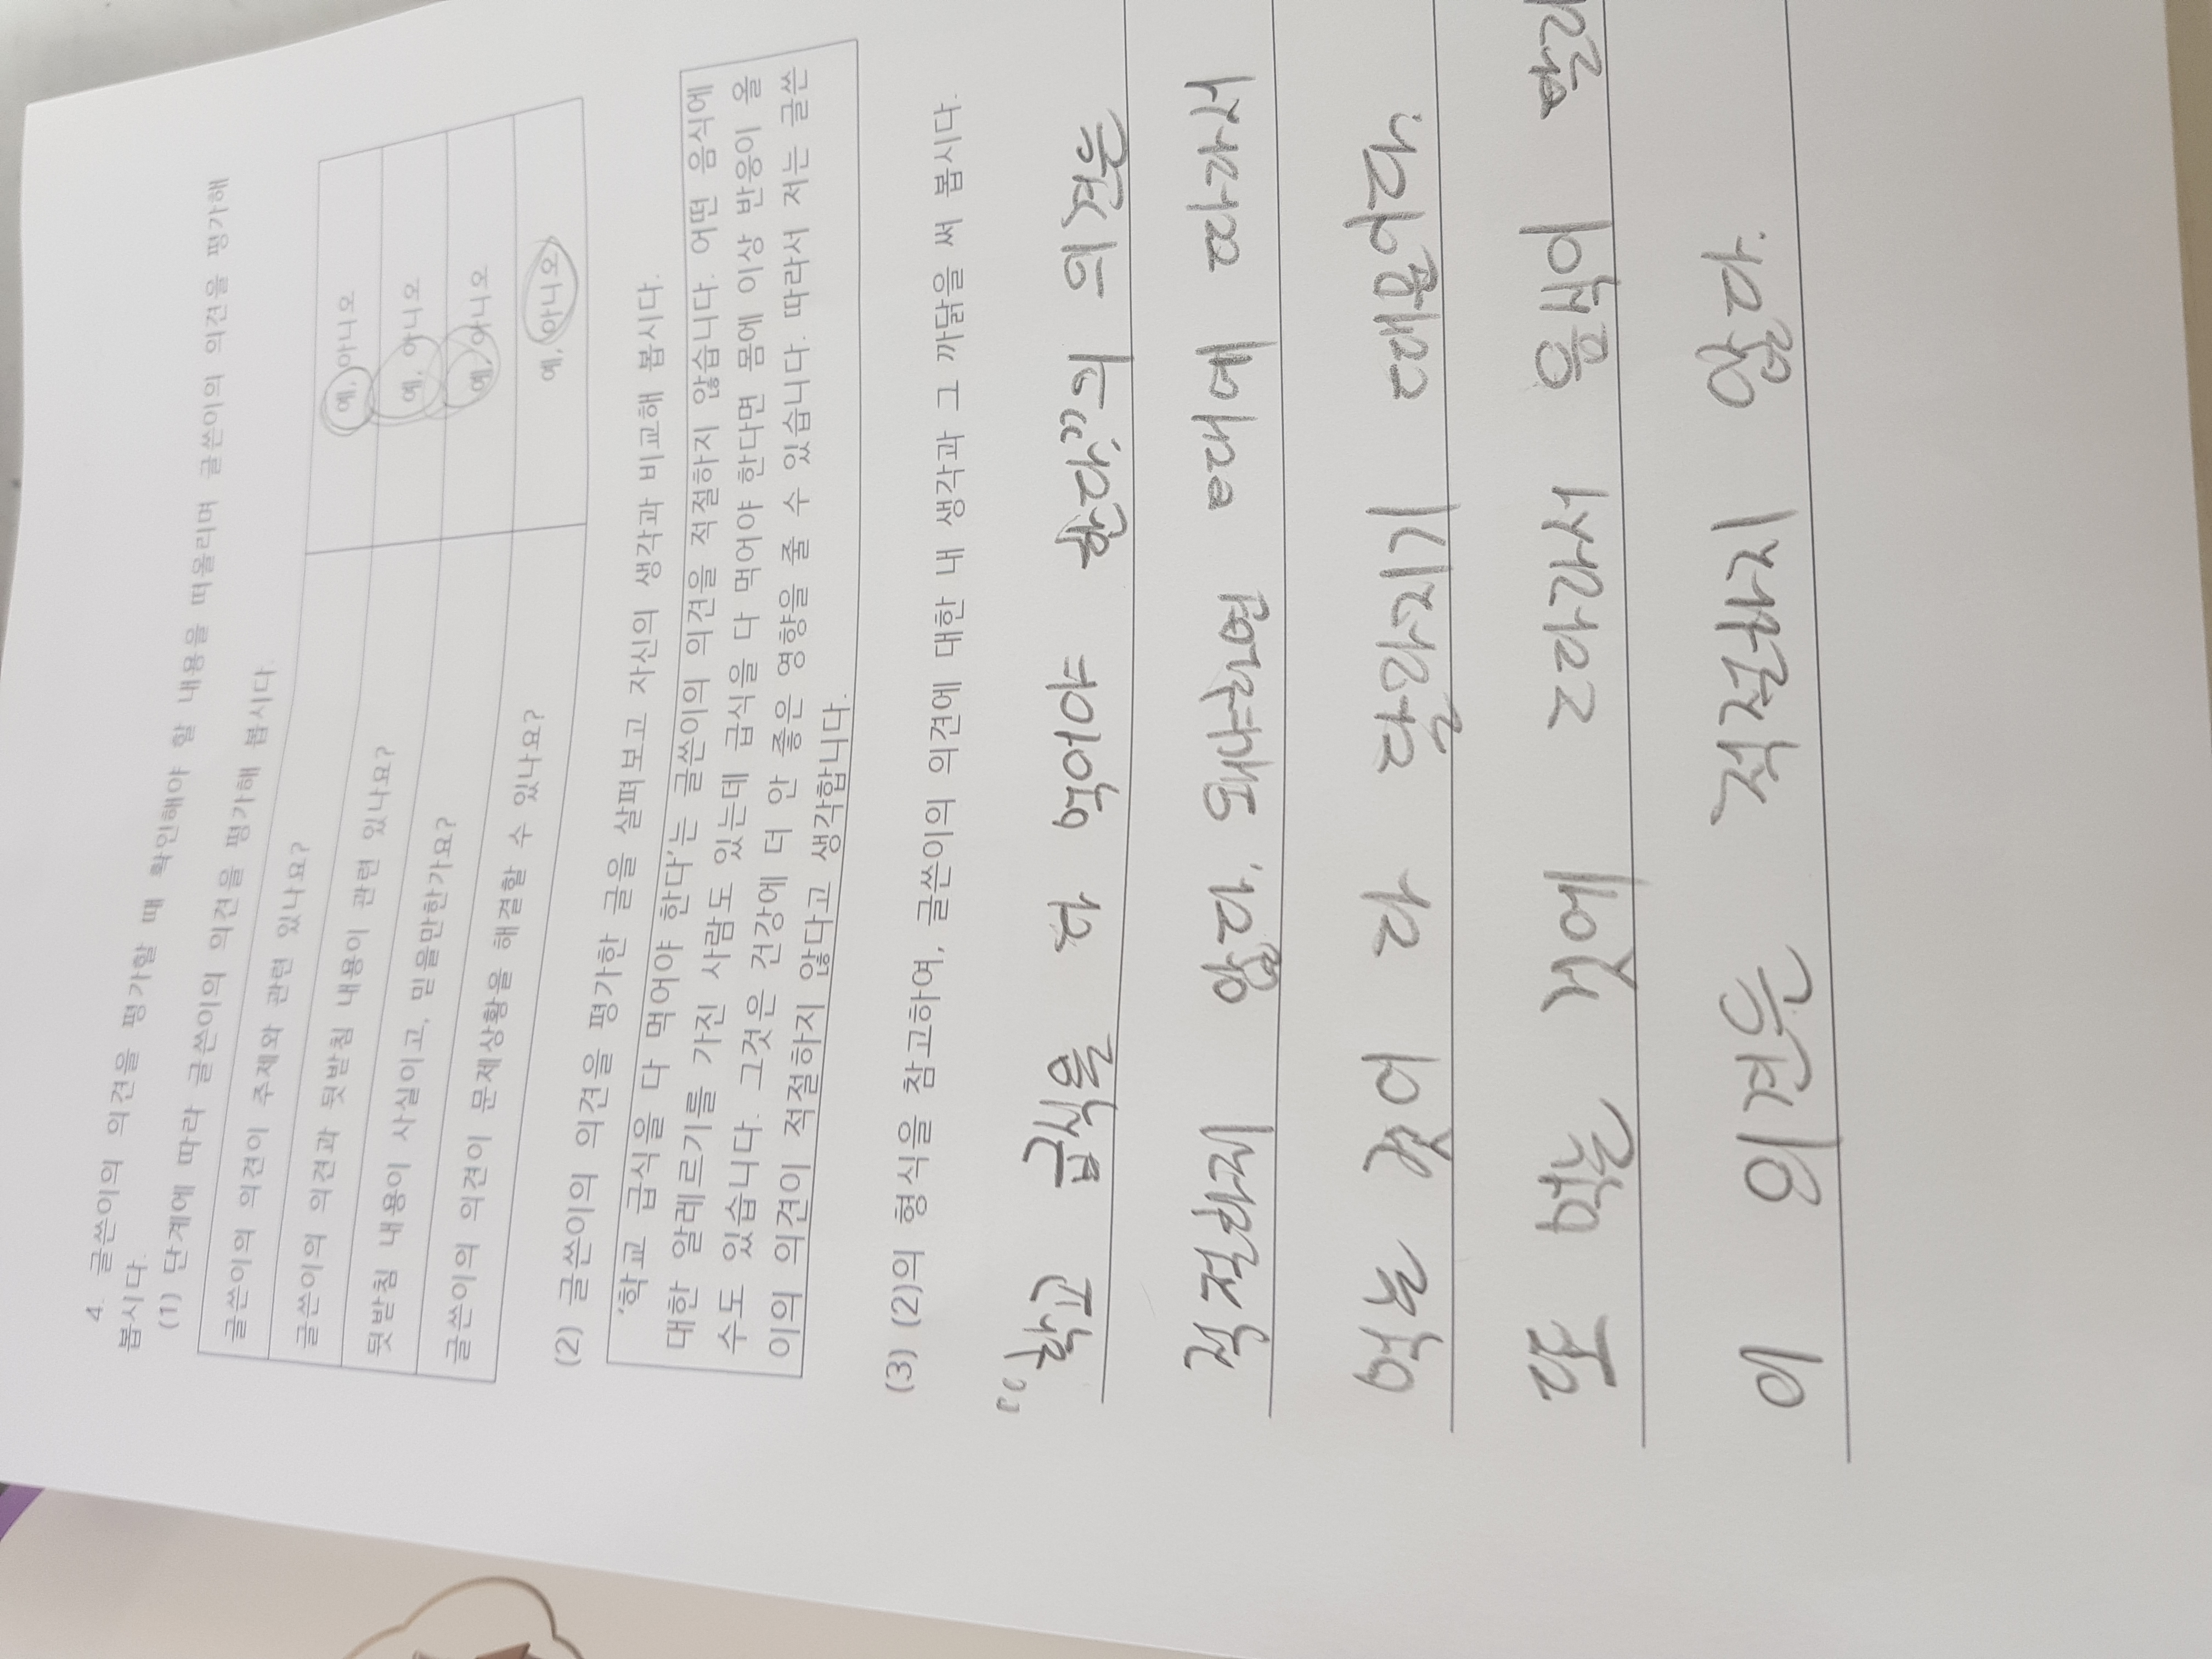 4. 글쓴이의 의견을 평가할 때 확인해야 할 내용을 떠올리며 글쓴이의 의견을 평가해
봅시다.
(1) 단계에 따라 글쓴이의 의견을 평가해 봅시다.
글쓴이의 의견이 주제와 관련 있나요? 예, 아니오
글쓴이의 의견과 뒷받침 내용이 관련 있나요? 예, 아니오
뒷받침 내용이 사실이고, 믿을만한가요? 예, 아니오
글쓴이의 의견이 문제상황을 해결할 수 있나요? 예, 아니오
(2) 글쓴이의 의견을 평가한 글을 살펴보고 자신의 생각과 비교해 봅시다.
'학교 급식을 다 먹어야 한다'는 글쓴이의 의견을 적절하지 않습니다. 어떤 음식에
대한 알레르기를 가진 사람도 있는데 급식을 다 먹어야 한다면 몸에 이상 반응이 올
수도 있습니다. 그것은 건강에 더 안 좋은 영향을 줄 수 있습니다. 따라서 저는 글쓴
이의 의견이 적절하지 않다고 생각합니다.
(3) (2)의 형식을 참고하여, 글쓴이의 의견에 대한 내 생각과 그 까닭을 써 봅시다.
"학교 급식을 다 먹어야 한다."의 의견은
적절하지 않다. 왜냐하면 때에 따라서
먹는 것이 다 달라지기 때문이다.
또 먹는 것에 따라서 음식이 달라
이 의견은 적절하지 않다.